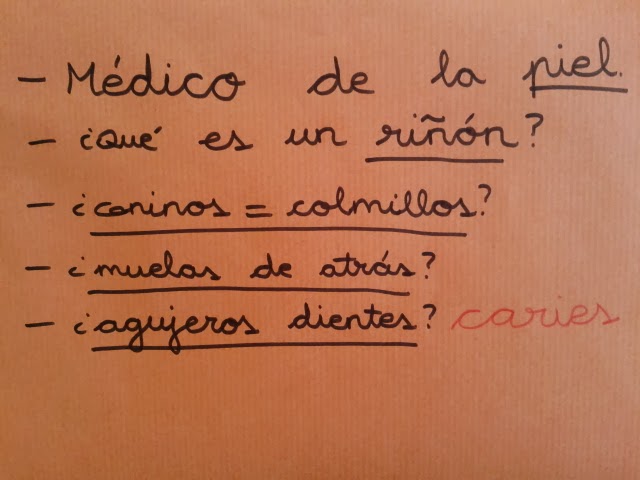 - Médico de la piel.
- ¿Qué es un riñón?
- ¿caninos = colmillos?
- ¿muelas de atrás?
- ¿agujeros dientes? caries